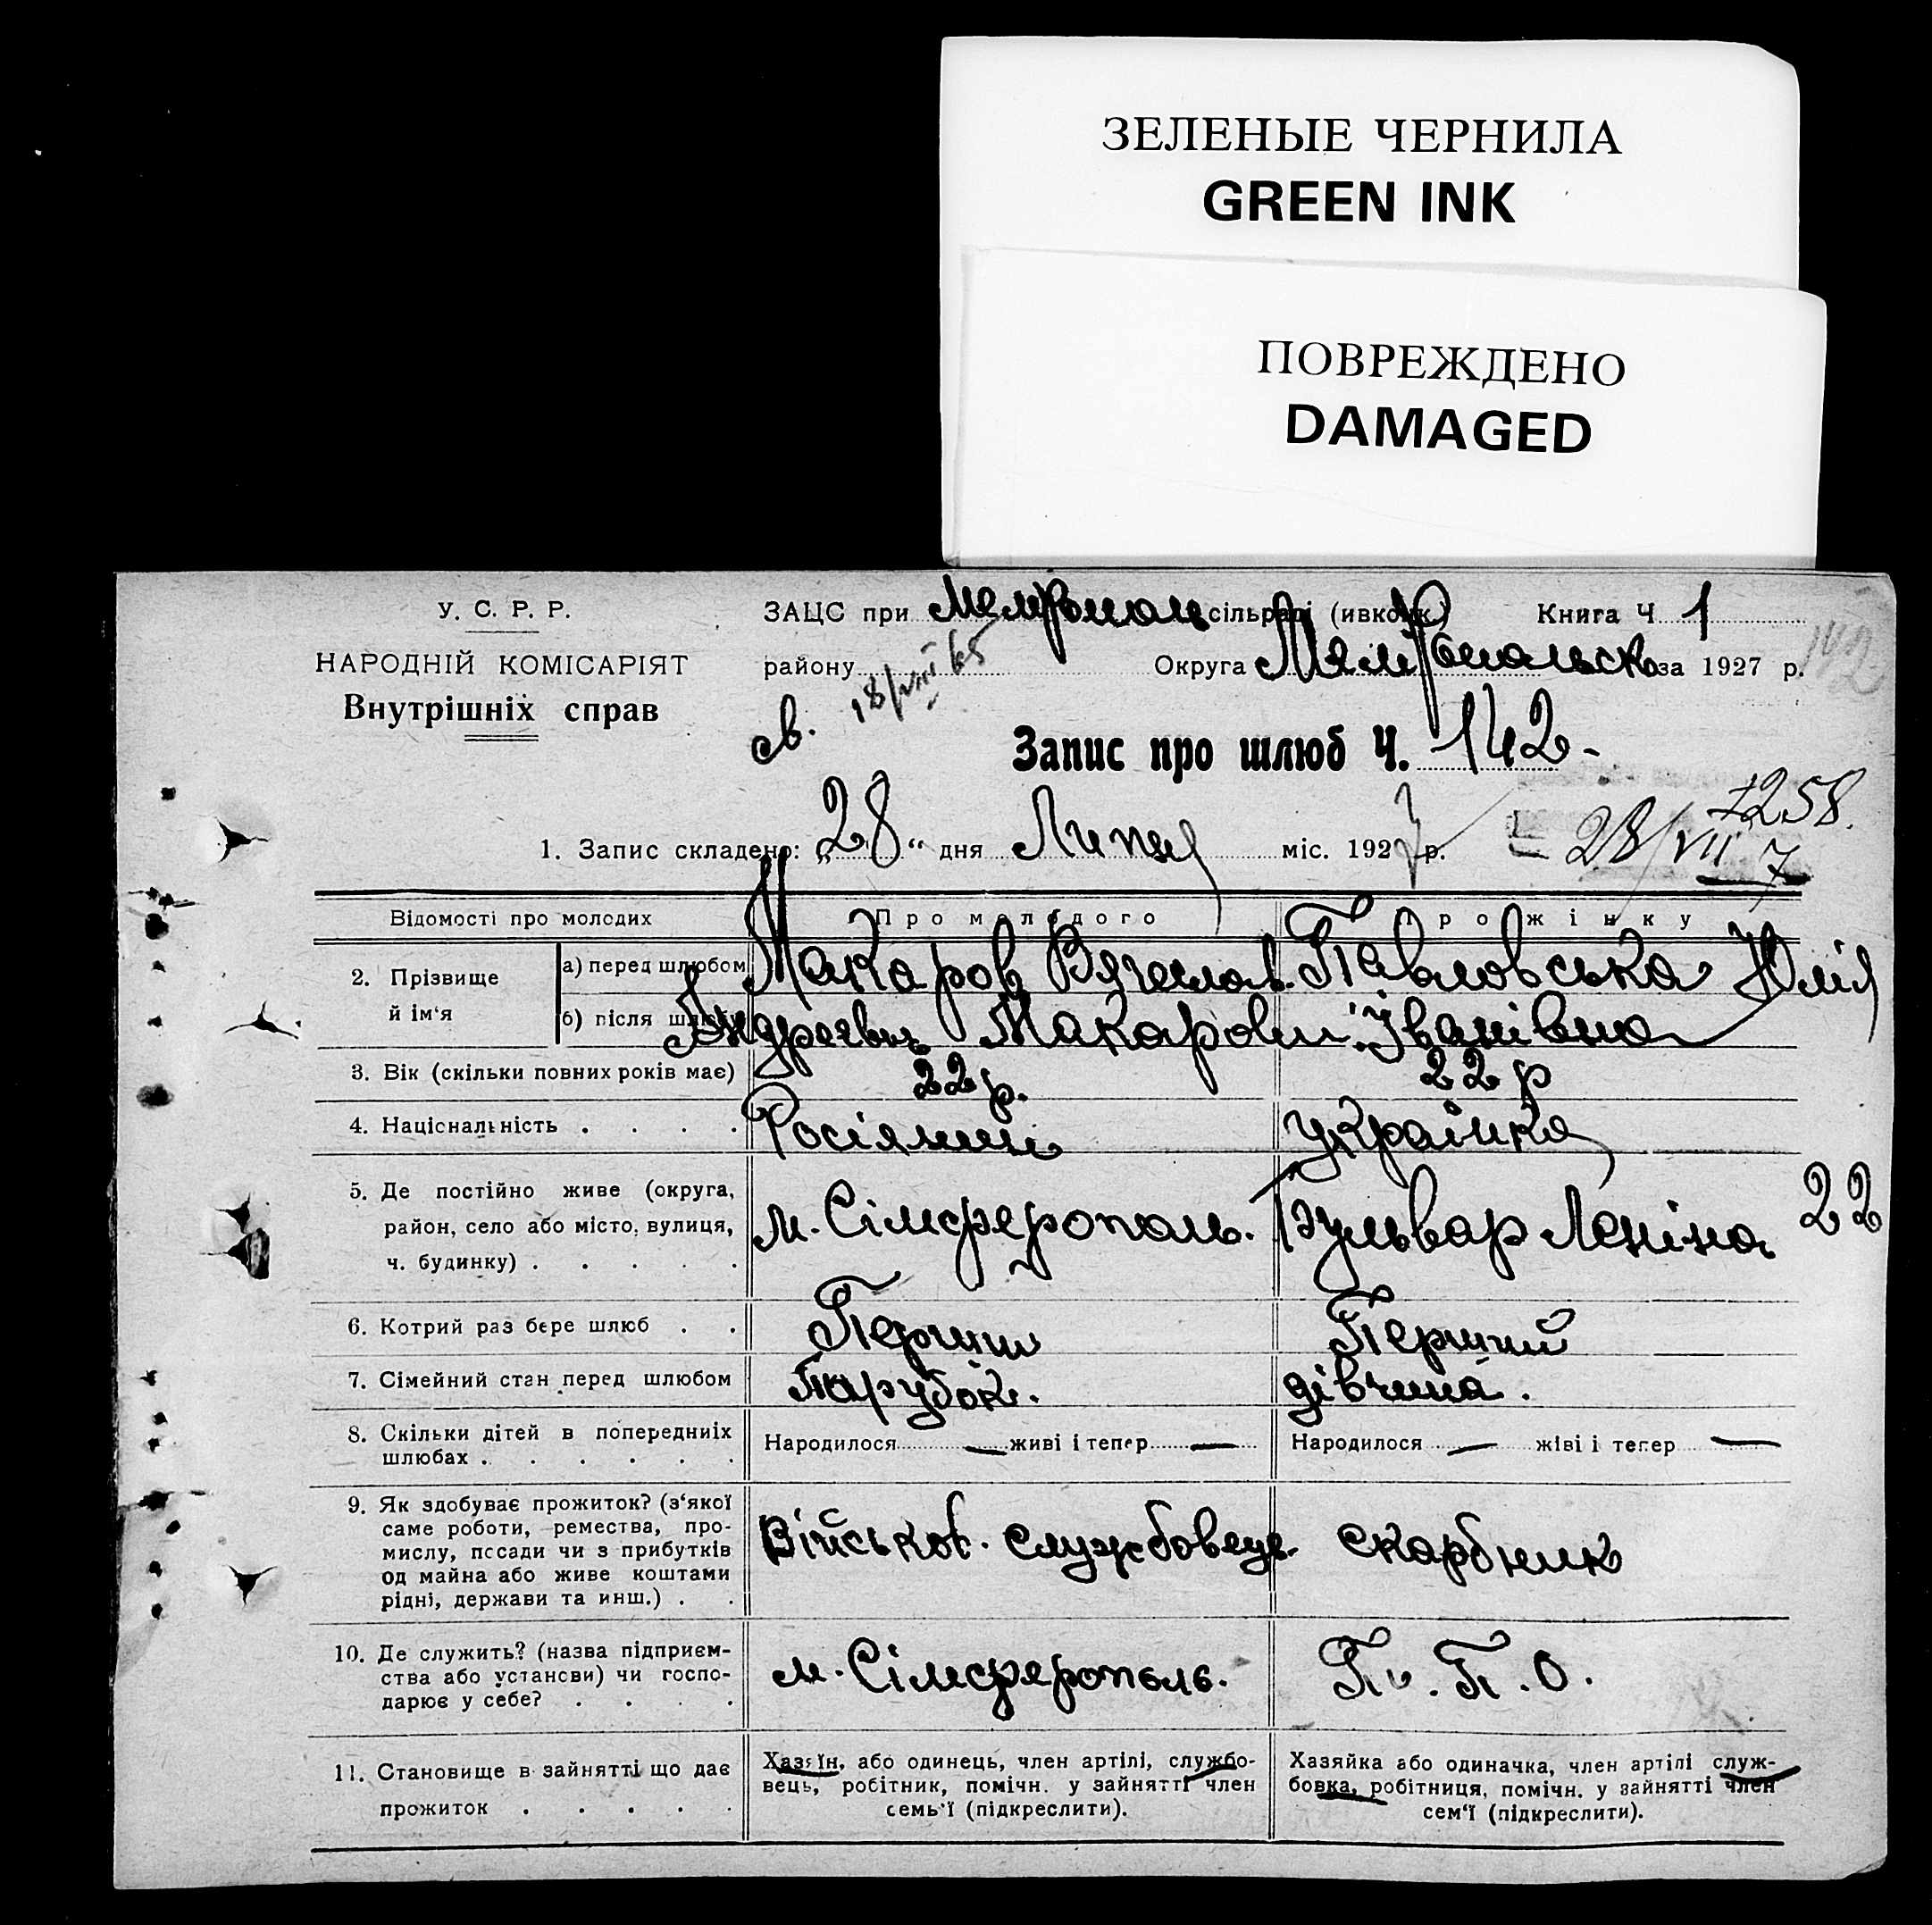 ЗЕЛЕНЫЕ ЧЕРНИЛА
GREEN INK
ПОВРЕЖДЕНО
DAMAGED
У. С. Р. Р.
НАРОДНІЙ КОМІСАРІЯТ
Внутрішніх справ
ЗАЦС при сільраді (ивконк.) Книга Ч 1
району Округа за 1927 р. 142
св. 18/VIII 65
Запис про шлюб Ч. 142-
1258.
1. Запис складено: „28“ дня Липня міс. 1927 р. 28/VII 7
Відомості про молодих Про молодого Про жінку
2. Прізвище й ім‘я
а) перед шлюбом Макаров Вячеслав Павловська Юлія
б) після шлюбу Андреевич Макарови Іванівна
3. Вік (скільки повних років має) 22 р. 22 р
4. Національність . . . . Росіянин українка
5. Де постійно живе (округа,
район, село або місто, вулиця,
ч. будинку) . . . . .
м. Сімферополь. Бульвар Леніна 22
6. Котрий раз бере шлюб . . Перший Перший
7. Сімейний стан перед шлюбом Парубок. дівчина.
8. Скільки дітей в попередніх
шлюбах . . . . . .
Народилося — живі і тепер — Народилося — жіві і тепер —
9. Як здобуває прожиток? (з‘якої
саме роботи, ремества, про-
мислу, посади чи з прибутків
од майна або живе коштами
рідні, держави та инш.) . .
Військов. службовець. скарбник
10. Де служить? (назва підприєм-
ства або установи) чи госпо-
дарює у себе? . . . .
м. Сімферополь. П. О.
11. Становище в зайнятті що дає
прожиток . . . . .
Хазяїн, або одинець, член артілі, службо-
вець, робітник, помічн. у зайнятті член
семь‘ї (підкреслити).
Хазяйка або одиначка, член артілі служ-
бовка, робітниця, помічн. у зайнятті член
сем‘ї (підкреслити).